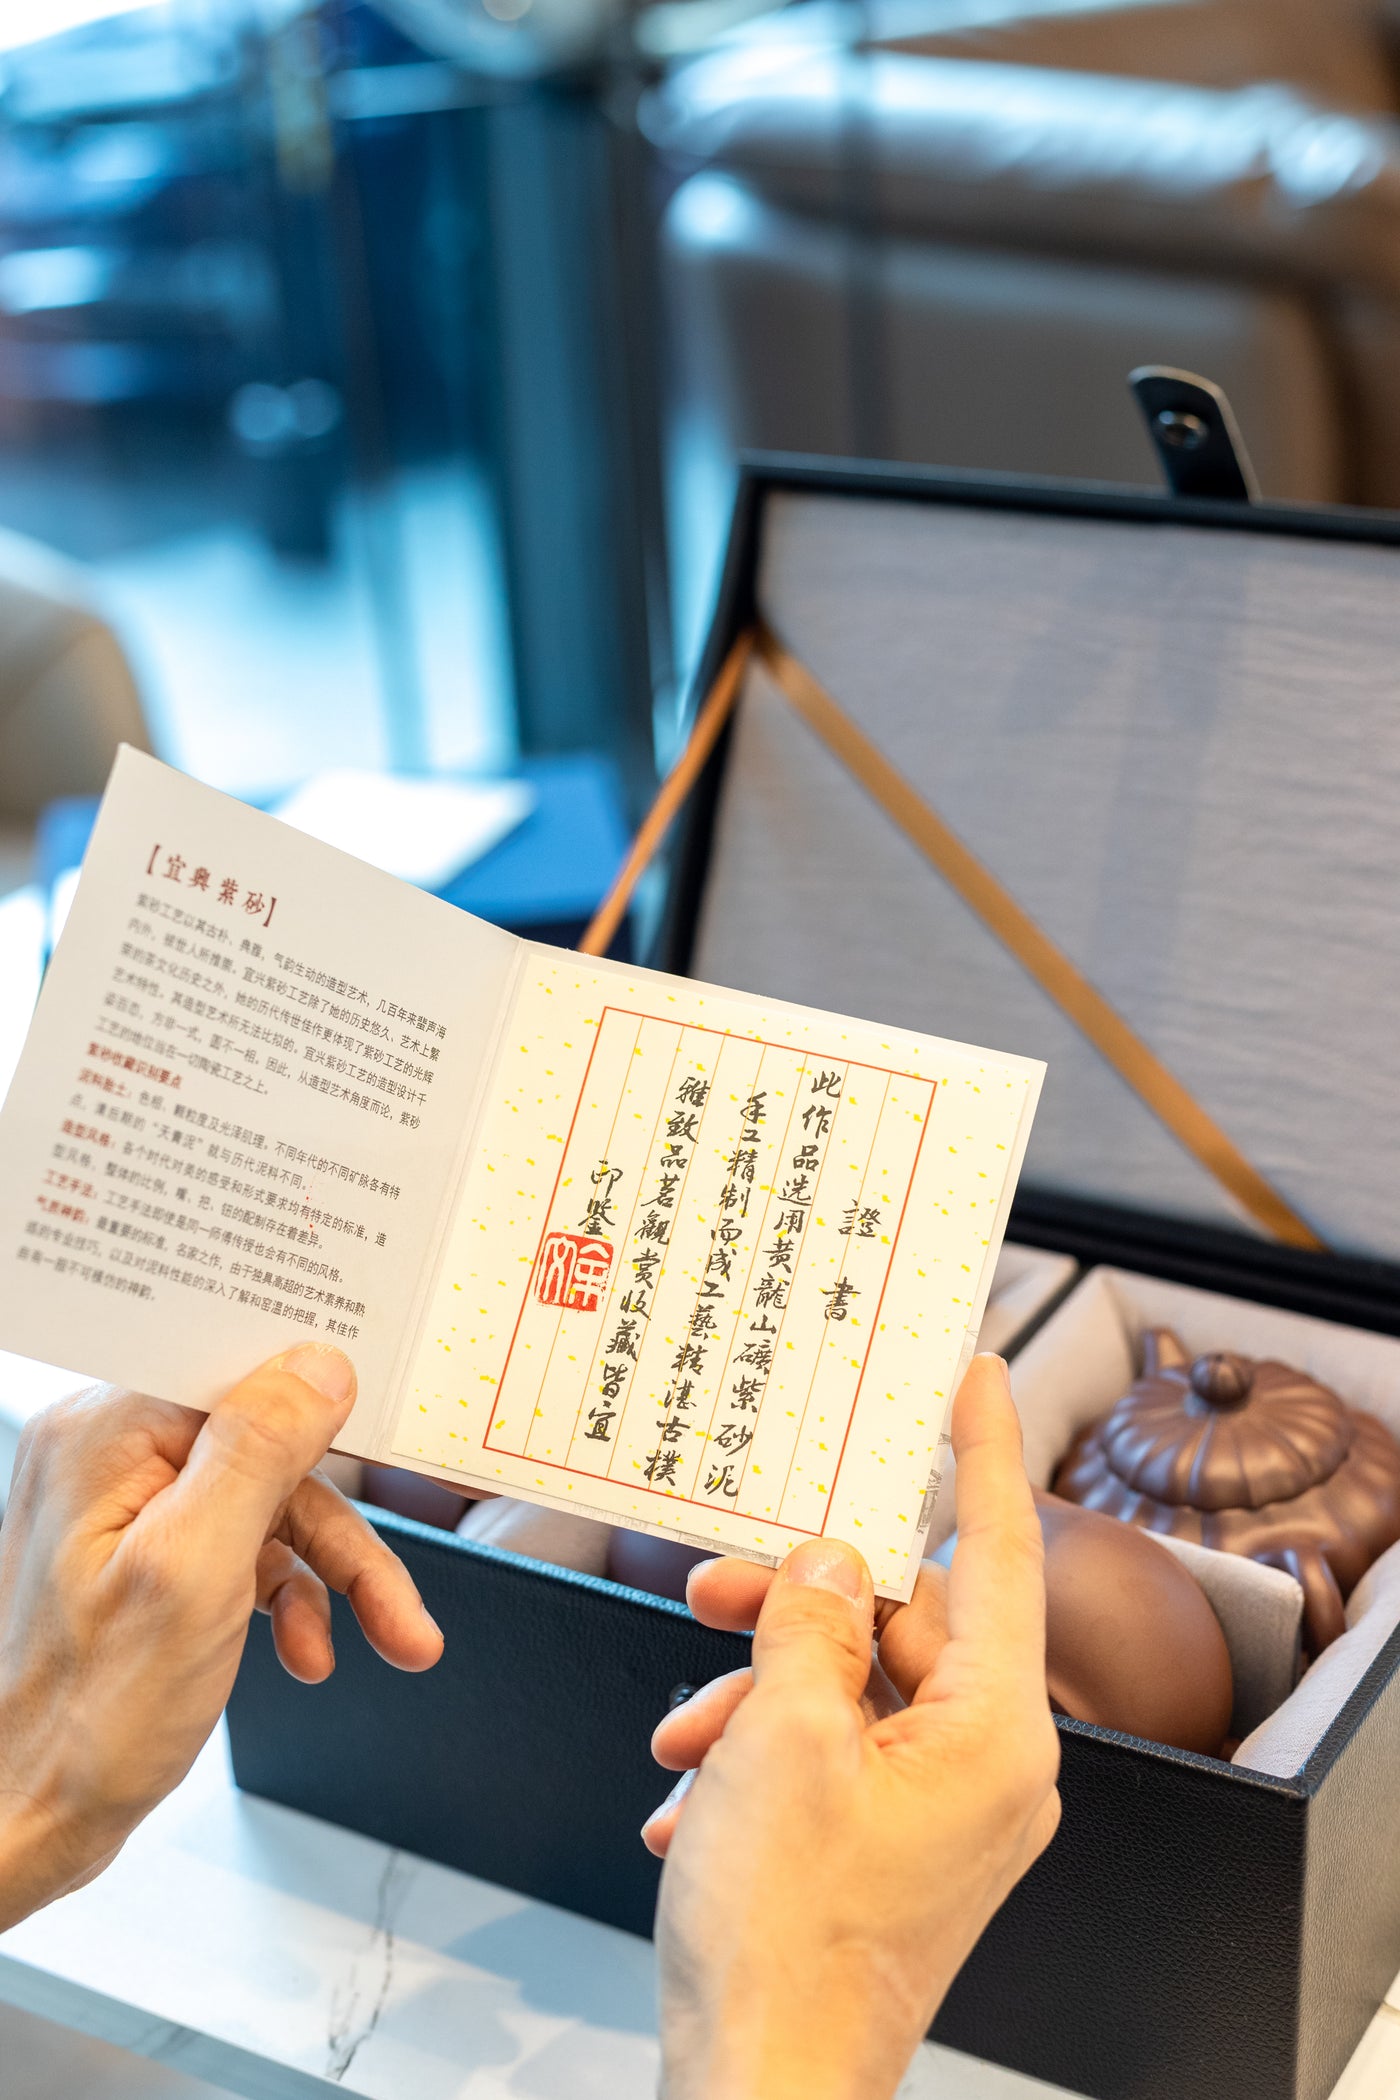 【宜興紫砂】
紫砂工艺以其古朴、典雅，气韵生动的造型艺术，几百年来蜚声海
内外，被世人所推崇，宜兴紫砂工艺除了她的历史悠久、艺术上繁
荣的茶文化历史之外，她的历代传世佳作更体现了紫砂工艺的光辉
艺术特性，其造型艺术所无法比拟的，宜兴紫砂工艺的造型设计千
姿百态，方非一式，圆不一相，因此，从造型艺术角度而论，紫砂
工艺的地位当在一切陶瓷工艺之上。
紫砂收藏识别要点
泥料胎土：色相、颗粒度及光泽肌理，不同年代的不同矿脉各有特
点，清后期的“天青泥”就与历代泥料不同。
造型风格：各个时代对美的感受和形式要求均有特定的标准，造
型风格、整体的比例，嘴、把、钮的配制存在着差异。
工艺手法：工艺手法即使是同一师傅传授也会有不同的风格。
气质神韵：最重要的标准，名家之作，由于独具高超的艺术素养和熟
练的专业技巧，以及对泥料性能的深入了解和窑温的把握，其佳作
自有一股不可模仿的神韵。
證書
此作品选用黄龍山礦紫砂泥
手工精制而成工藝精湛古樸
雅致品茗觀赏收藏皆宜
印鉴